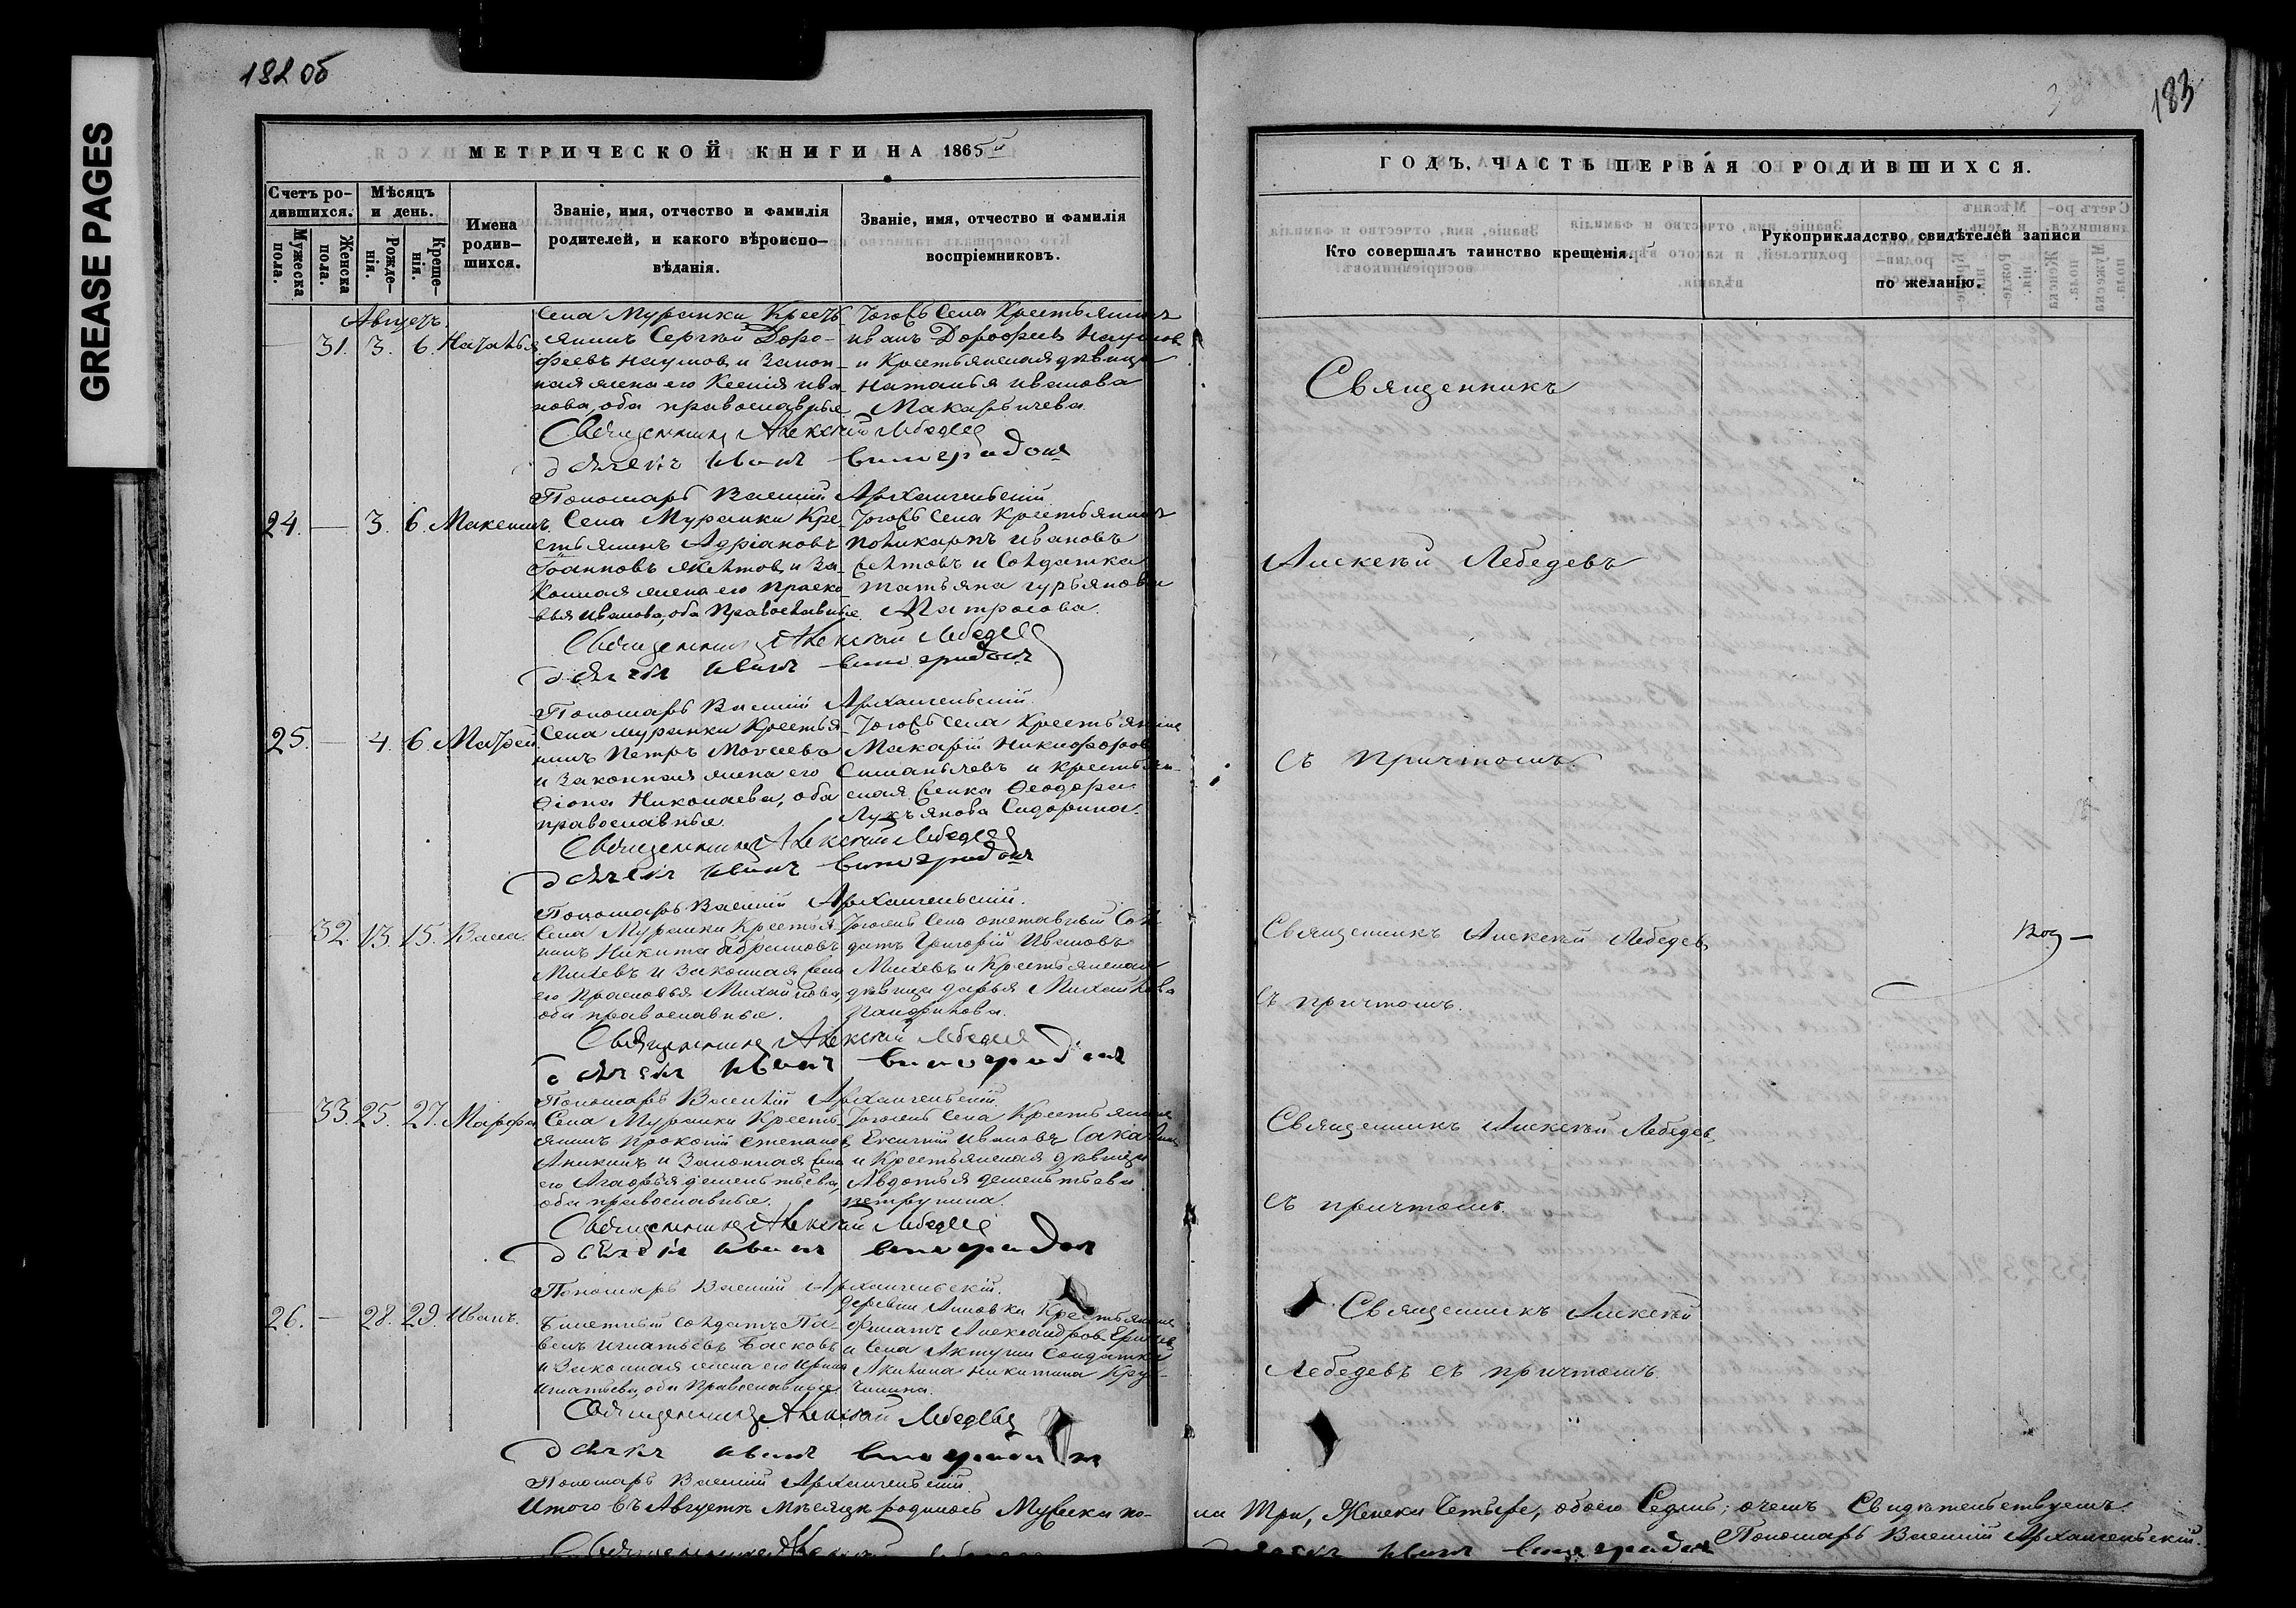 GREASE PAGES
182 об
МЕТРИЧЕСКОЙ КНИГИ НА 1865й
Счетъ ро-
дившихся.
Мѣсяцъ
и день.
Мужеска
пола.
Женска
пола.
Рожде-
нія.
Креще-
нія.
Имена
родив-
шихся.
Званіе, имя, отчество и фамилія
родителей, и какого вѣроиспо-
вѣданія.
Званіе, имя, отчество и фамилія
воспріемниковъ.
Августъ.
31. 3. 6. Наталья
Села Муранки Кресть-
янинъ Сергѣй Доро-
феевъ Наумовъ и закон-
ная жена его Ксенія Ива-
нова, оба православные
Тогожъ Села Крестьянинъ
Иванъ Дорофеевъ Наумовъ
и Крестьянская дѣвица
Наталья Иванова
Макарычева.
Священникъ Алексѣй Лебедевъ
дьячекъ Иванъ Виноградовъ
Пономарь Василій Архангельскій
24. — 3. 6. Максимъ.
Села Муранки Кре-
стьянинъ Адріановъ
Іоанновъ и за-
конная жена его Праско-
вья Иванова, оба Православные
Тогожъ Села Крестьянинъ
Поликарпъ Ивановъ
и Солдатка
Татьяна Гурьянова
Матросова.
Священникъ Алексѣй Лебедевъ
дьячекъ Иванъ Виноградовъ
Пономарь Василій Архангельскій
25. — 4. 6. Матфей.
Села Муранки Крестья-
нинъ Петръ Моисеевъ
и Законная жена его
Николаева, оба
православные.
Тогожъ Села Крестьянинъ
Макарій Никифоровъ
и Крестьян-
ская Ѳеодора
Лукьянова Сидорина.
Священникъ Алексѣй Лебедевъ
дьячекъ Иванъ Виноградовъ
Пономарь Василій Архангельскій.
— 32. 13. 15. Васса.
Села Муранки Крестья-
нинъ Никита Абрамовъ
Михеевъ и Законная жена
его Прасковья Михайлова,
оба православные.
Тогожъ Села отставный Сол-
датъ Григорій Ивановъ
Михеевъ и Крестьянская
дѣвица Дарья Михайлова
Панфилова.
Священникъ Алексѣй Лебедевъ
дьячекъ Иванъ Виноградовъ
Пономарь Василій Архангельскій
— 33. 25. 27. Марфа
Села Муранки Кресть-
янинъ Прокопій Степановъ
Аникинъ и Законная жена
его Агафья Дементьева,
оба православные.
Тогожъ Села Крестьянинъ
Ивановъ
и Крестьянская дѣвица
Авдотья Дементьева
Петрунина.
Священникъ Алексѣй Лебедевъ
дьячекъ Иванъ Виноградовъ
Пономарь Василій Архангельскій.
26. — 28. 29. Иванъ.
Билетный солдатъ Па-
велъ Игнатьевъ Басковъ
и Законная жена его Ирина
Игнатьева, оба Православные
деревни Крестьянинъ
Филатъ Александровъ
и Села Актуши Солдатка
Акилина Никитина
Священникъ Алексѣй Лебедевъ
дьячекъ Иванъ Виноградовъ
Пономарь Василій Архангельскій.
Итого въ Августѣ мѣсяцѣ родилось Мужска по-
183
ГОДЪ, ЧАСТЬ ПЕРВАЯ О РОДИВШИХСЯ.
Кто совершалъ таинство крещенія.
Рукоприкладство свидѣтелей записи
по желанію.
Священникъ
Алексѣй Лебедевъ
съ причтомъ.
Священникъ Алексѣй Лебедевъ
съ причтомъ.
Священникъ Алексѣй Лебедевъ
съ причтомъ.
Священникъ Алексѣй
Лебедевъ съ причтомъ.
ла Три, Женска Четыре, обоего Седмь; о чемъ Свидѣтельствуемъ.
Пономарь Василій Архангельскій.
дьячекъ Иванъ Виноградовъ